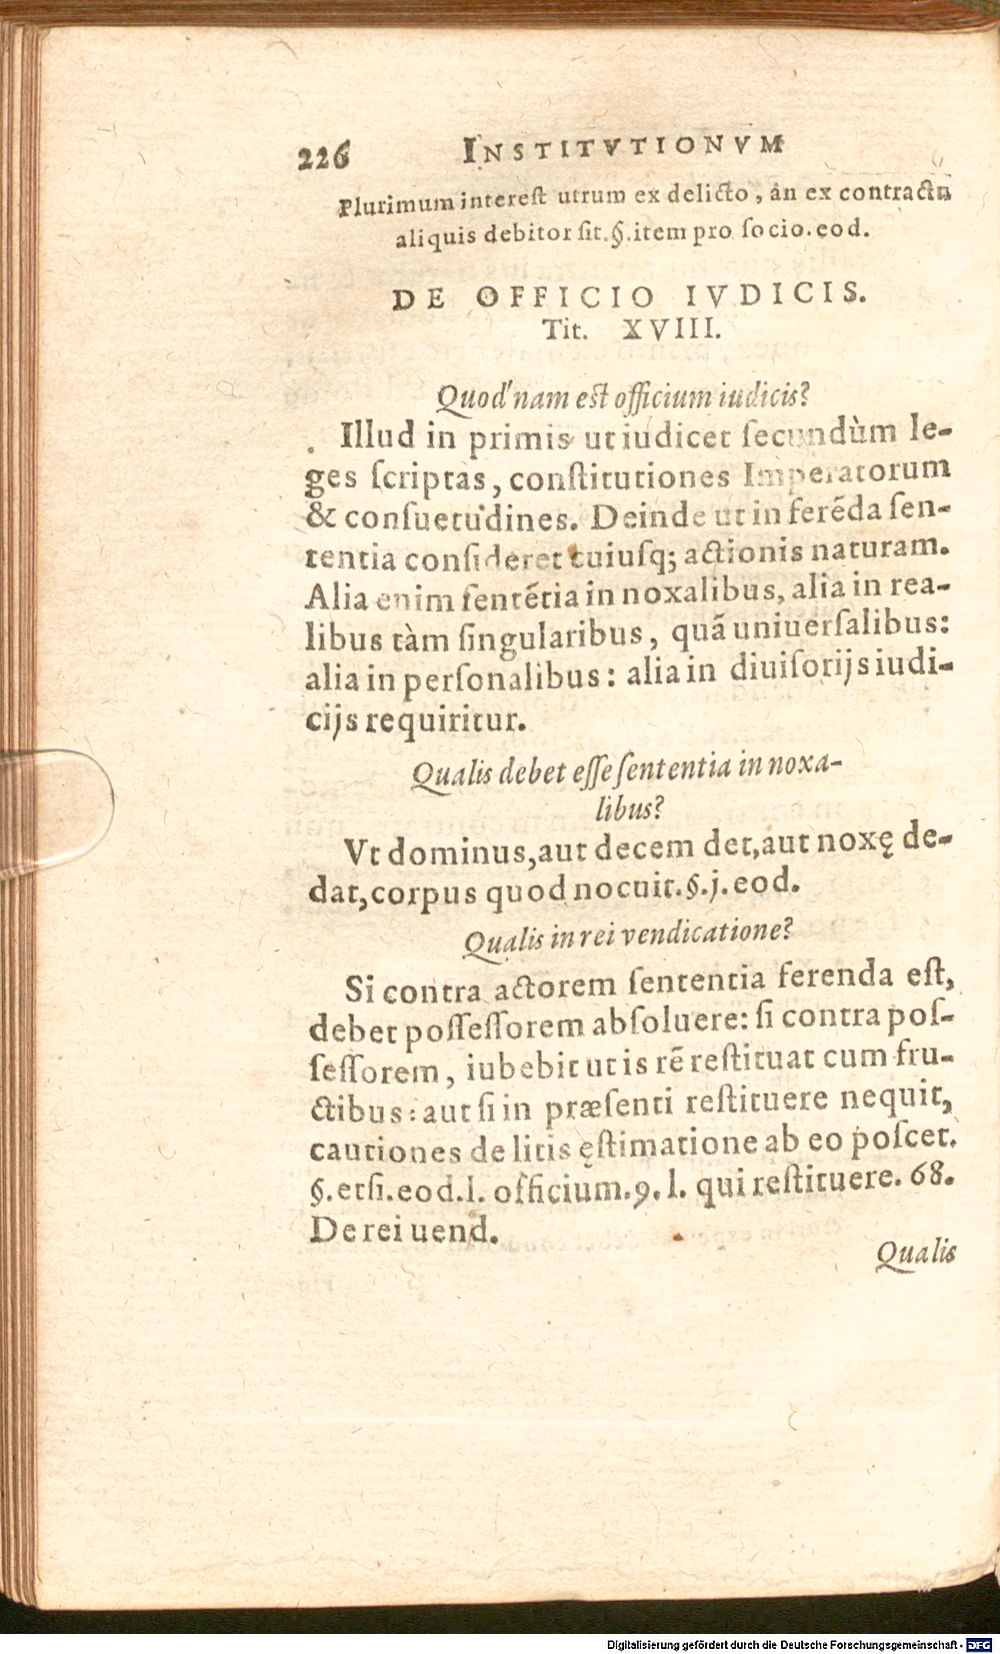 226 INSTITVTIONVM
Plurimum interest utrum ex delicto, an ex contractu
aliquis debitor sit. §. item pro socio. eod.
DE OFFICIO IVDICIS.
Tit. XVIII.
Quod'nam est officium iudicis?
Illud in primis ut iudicet secundùm le-
ges scriptas, constitutiones Imperatorum
& consuetudines. Deinde ut in ferēda sen-
tentia consideret cuiusq; actionis naturam.
Alia enim sentētia in noxalibus, alia in rea-
libus tàm singularibus, quā uniuersalibus:
alia in personalibus: alia in diuisorijs iudi-
cijs requiritur.
Qualis debet esse sententia in noxa-
libus?
Vt dominus, aut decem det, aut noxę de-
dat, corpus quod nocuit. §. j. eod.
Qualis in rei vendicatione?
Si contra actorem sententia ferenda est,
debet possessorem absoluere: si contra pos-
sessorem, iubebit ut is rē restituat cum fru-
ctibus: aut si in præsenti restituere nequit,
cautiones de litis ęstimatione ab eo poscet.
§. etsi. eod. l. officium. 9. l. qui restituere. 68.
De rei uend.
Qualis
Digitalisierung gefördert durch die Deutsche Forschungsgemeinschaft - DFG